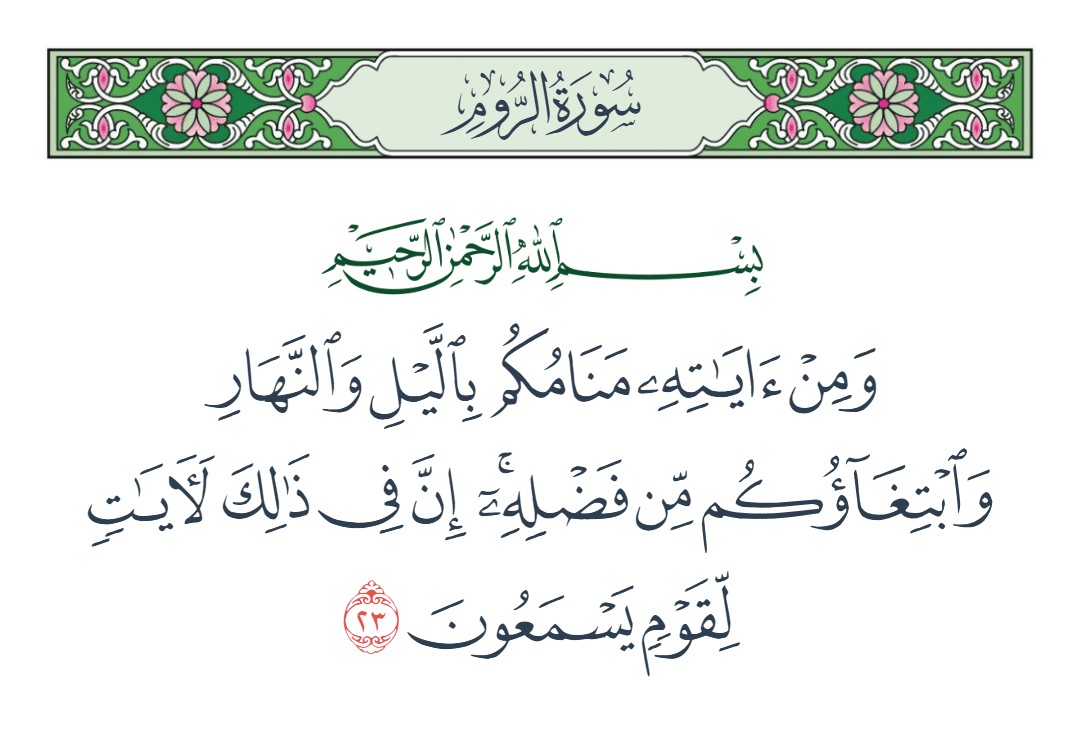 سُورَةُ الرُّومِ
بِسْمِ ٱللَّهِ ٱلرَّحْمَٰنِ ٱلرَّحِيمِ
وَمِنْ ءَايَٰتِهِۦ مَنَامُكُم بِٱلَّيْلِ وَٱلنَّهَارِ
وَٱبْتِغَآؤُكُم مِّن فَضْلِهِۦٓ ۚ إِنَّ فِى ذَٰلِكَ لَـَٔايَٰتٍ
لِّقَوْمٍ يَسْمَعُونَ ٢٣